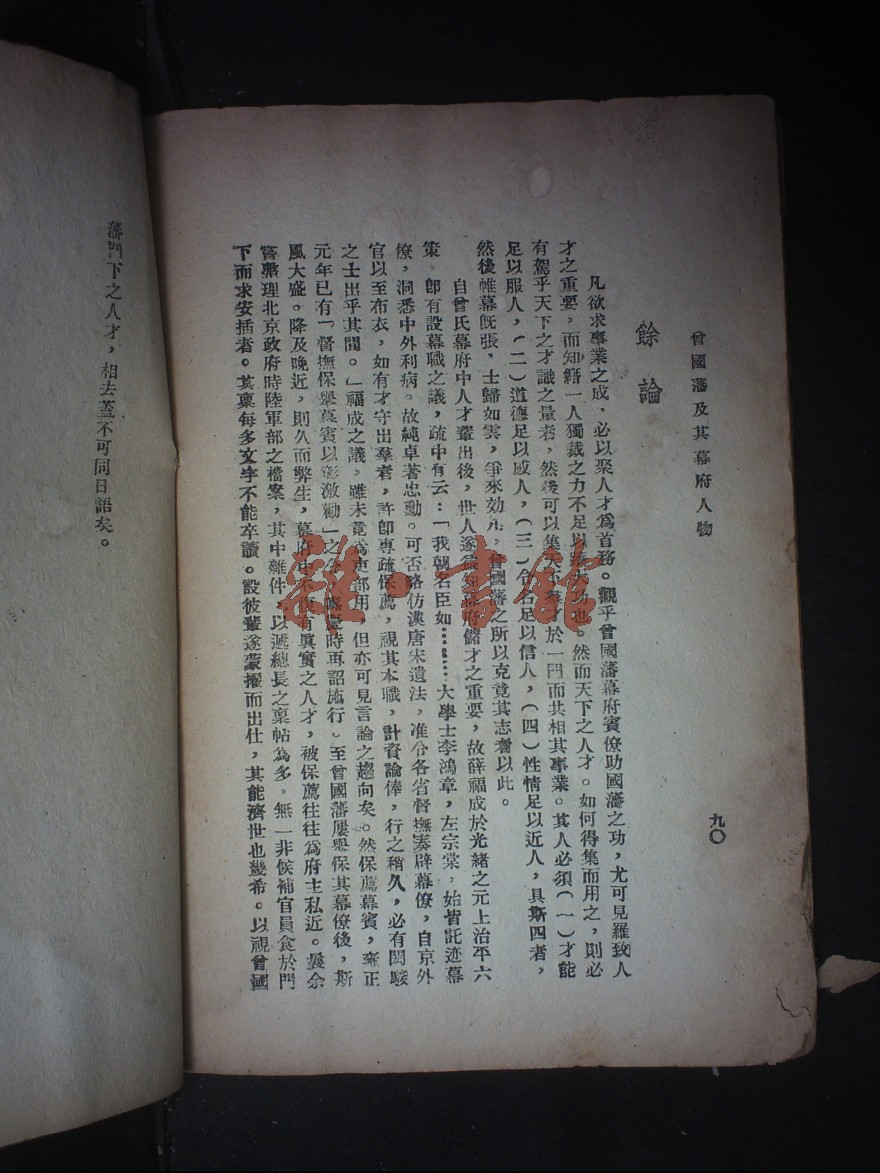 曾國藩及其幕府人物
九〇
餘論
凡欲求事業之成，必以聚人才爲首務。觀乎曾國藩幕府賓僚助國藩之功，尤可見羅致人
才之重要，而知藉一人獨裁之力不足以談大功也。然而天下之人才。如何得集而用之，則必
有駕乎天下之才識之量者，然後可以集天下羣才於一門而共相其事業。其人必須（一）才能
足以服人，（二）道德足以感人，（三）令名足以信人，（四）性情足以近人，具斯四者，
然後帷幕旣張，士歸如雲，爭來効力，曾國藩之所以克竟其志者以此。
自曾氏幕府中人才輩出後，世人遂益知幕府儲才之重要，故薛福成於光緒之元上治平六
策，卽有設幕職之議，疏中有云：「我朝名臣如………大學士李鴻章，左宗棠，始皆託迹幕
僚，洞悉中外利病。故純卓著忠勳。可否略仿漢唐宋遺法，准令各省督撫奏辟幕僚，自京外
官以至布衣，如有才守出羣者，許卽專疏保薦，視其本職，計資論俸，行之稍久，必有閎駿
之士出乎其間。」福成之議，雖未竟爲吏部用，但亦可見言論之趨向矣。然保薦幕賓，雍正
元年已有「督撫保舉幕賓以彰激勸」之令，嘉慶時再詔施行。至曾國藩屢舉保其幕僚後，斯
風大盛。降及晚近，則久而弊生，幕府中不復有眞實之人才，被保薦往往爲府主私近。曩余
嘗整理北京政府時陸軍部之檔案，其中雜件，以遞總長之稟帖爲多，無一非候補官員食於門
下而求安插者。其稟每多文字不能卒讀。設彼輩遂蒙擢而出仕，其能濟世也幾希。以視曾國
藩門下之人才，相去蓋不可同日語矣。
雜·書館